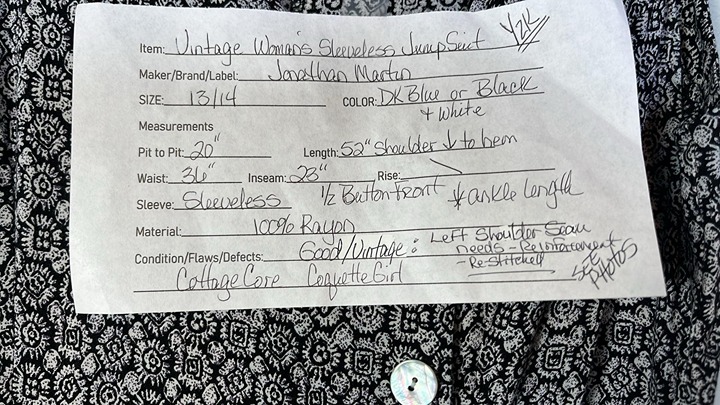 Item: Vintage Woman's Sleeveless JumpSuit Y2K
Maker/Brand/Label: Jonathan Martin
SIZE: 13/14 COLOR: DK Blue or Black
+ White
Measurements
Pit to Pit: 20" Length: 52" Shoulder ↓ to hem
Waist: 36" Inseam: 23" Rise:
Sleeve: Sleeveless 1/2 Button Front * ankle length
Material: 100% Rayon
Condition/Flaws/Defects: Good/Vintage: Left Shoulder Seam
needs - Reinforcement
- Re-stitched
SEE PHOTOS
Cottage Core Coquette Girl